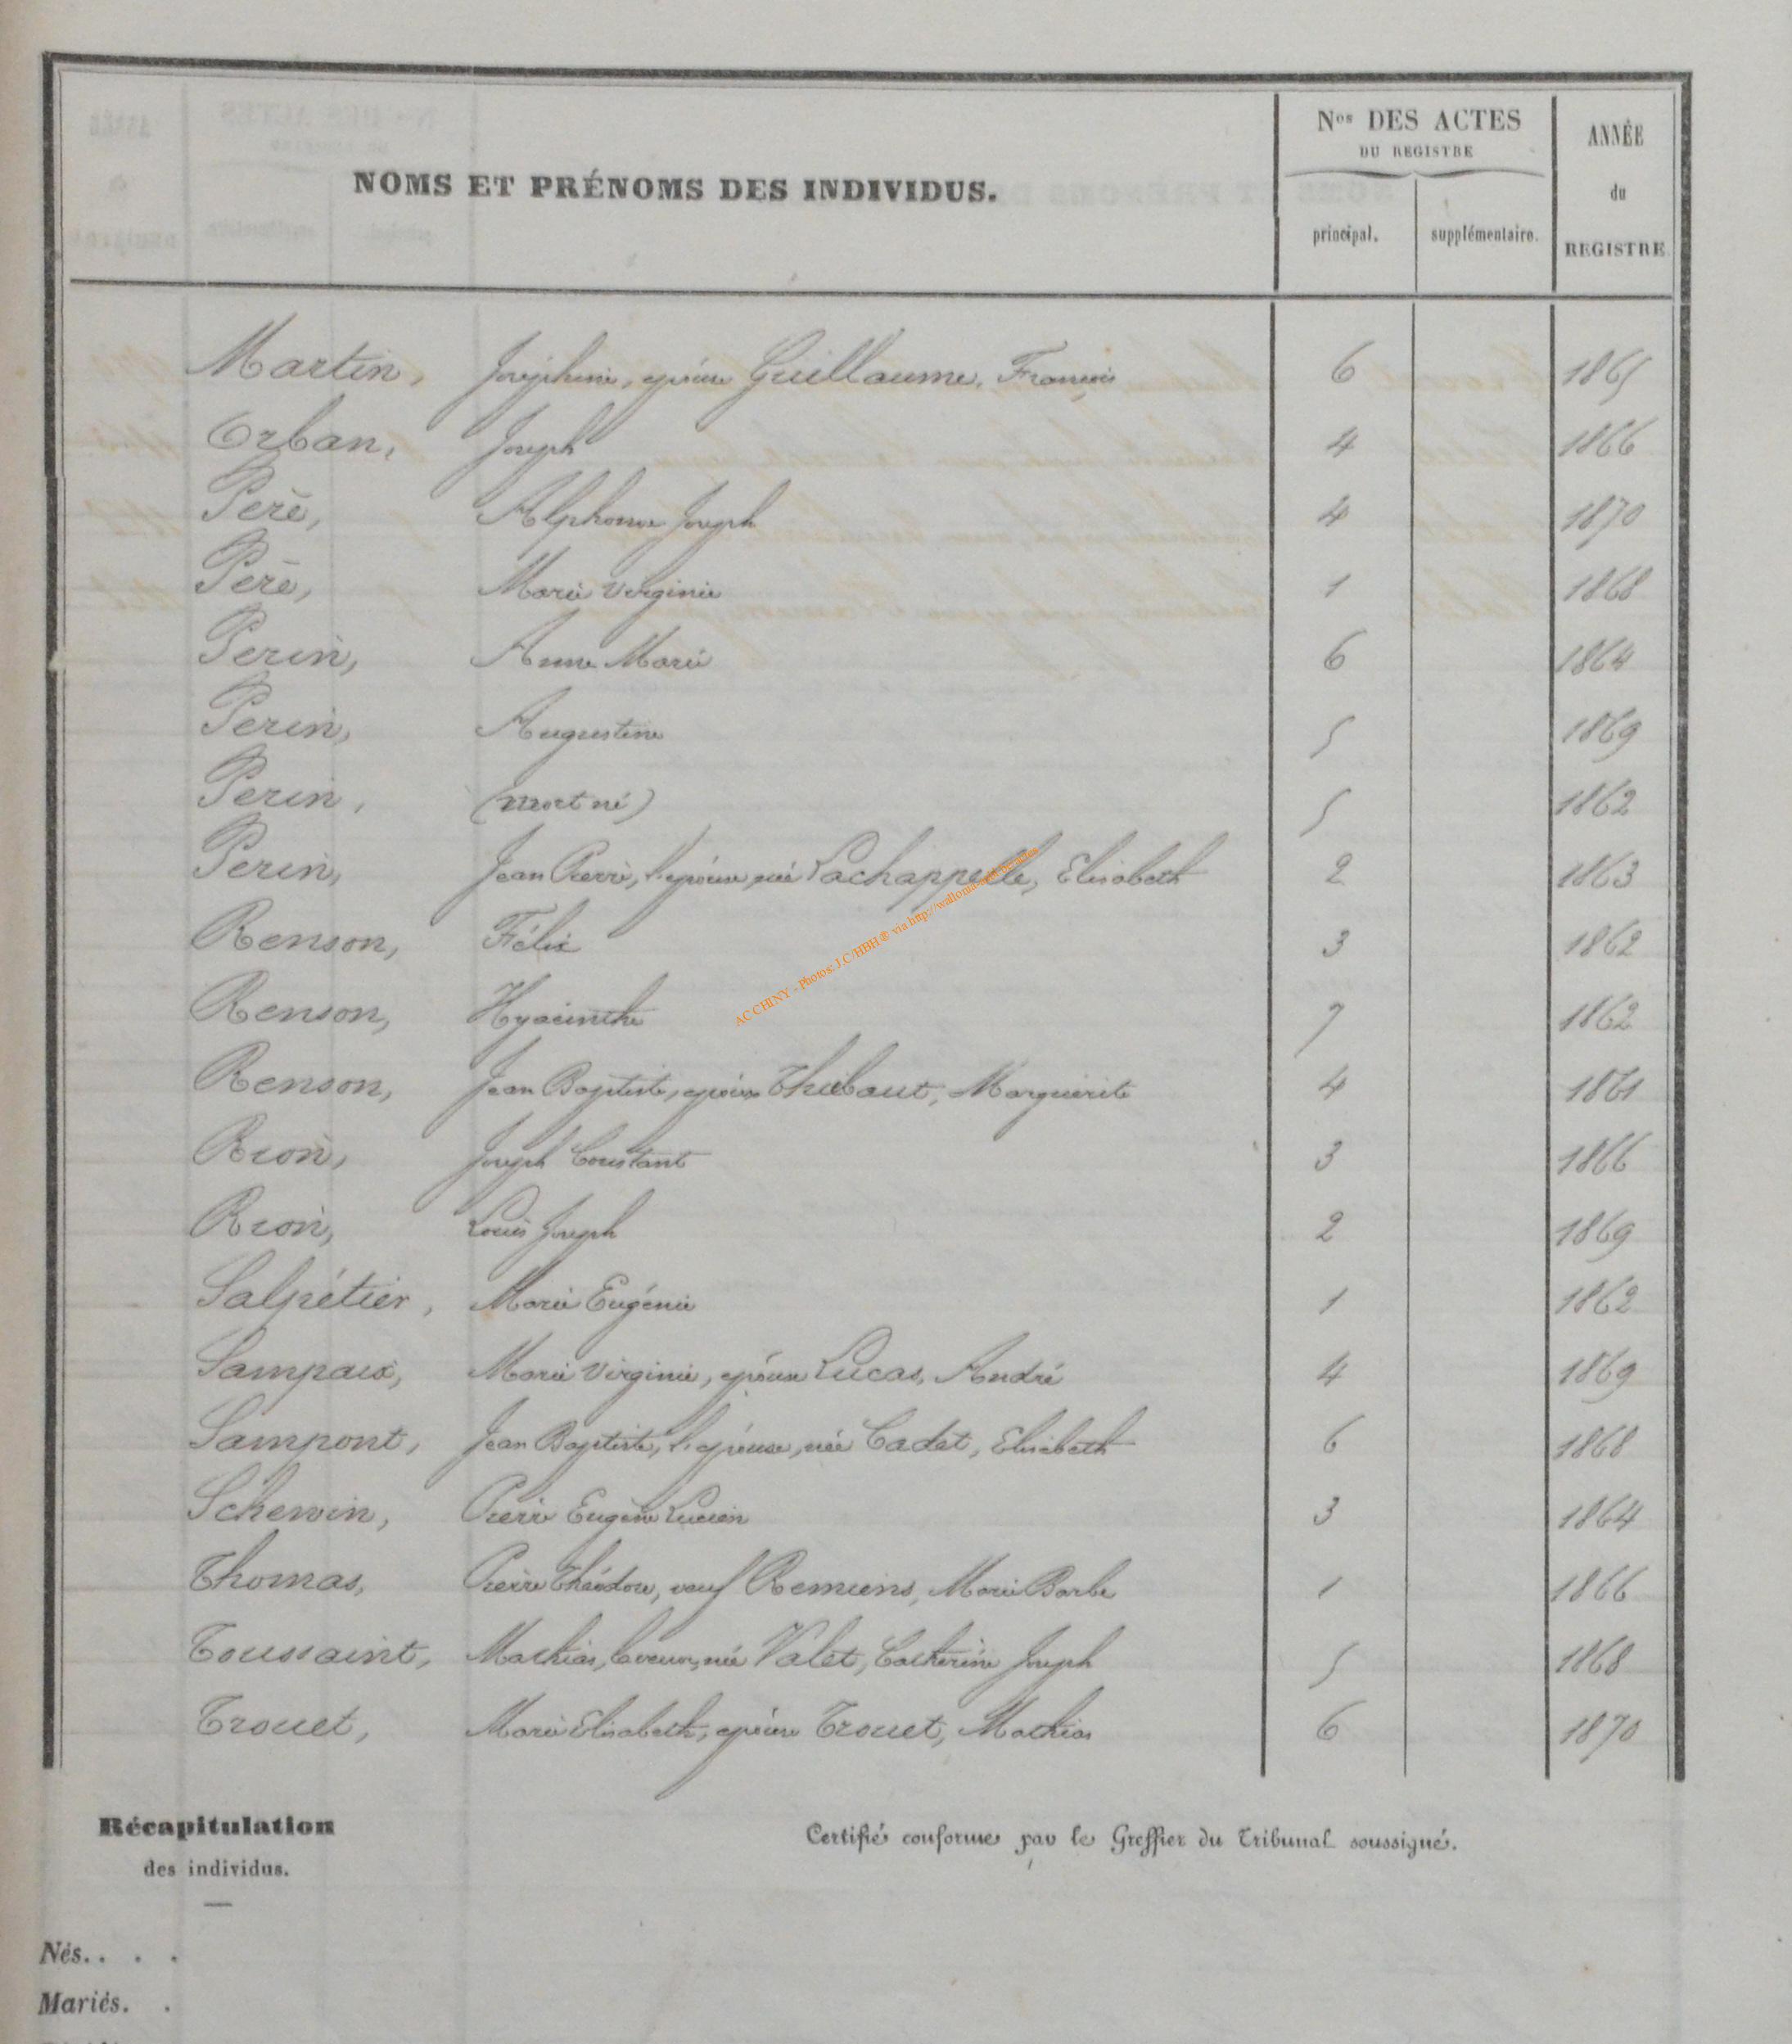 NOMS ET PRÉNOMS DES INDIVIDUS.
Nos DES ACTES
DU REGISTRE
principal. supplémentaire.
ANNÉE
du
REGISTRE
Martin, Joséphine, épouse Guillaume, François 6 1865
Orban, Joseph 4 1866
Perè, Alphonse Joseph 4 1870
Perè, Marie Virginie 1 1868
Perin, Anne Marie 6 1864
Perin, Augustine 5 1869
Perin, (mort né) 5 1862
Perin, Jean Pierre, l'épouse, née Lachappelle, Elisabeth 2 1863
Renson, Félix 3 1862
Renson, Hyacinthe 7 1862
Renson, Jean Baptiste, époux Thiebaut, Marguerite 4 1861
Rion, Joseph Constant 3 1866
Rion, Louis Joseph 2 1869
Salpétier, Marie Eugénie 1 1862
Sampaix, Marie Virginie, épouse Lucas, André 4 1869
Sampont, Jean Baptiste, l'épouse, née Cadet, Elisabeth 6 1868
Schewin, Pierre Eugène Lucien 3 1864
Thomas, Pierre Théodore, veuf Remiens, Marie Barbe 1 1866
Toussaint, Mathias, la veuve, née Valet, Catherine Joseph 5 1868
Trouet, Marie Elisabeth, épouse Trouet, Mathias 6 1870
AC CHINY - Photos: J.C/HBH ® via http://
Récapitulation
des individus.
Certifié conforme par le Greffier du Tribunal soussigné.
Nés. . . .
Mariés. .